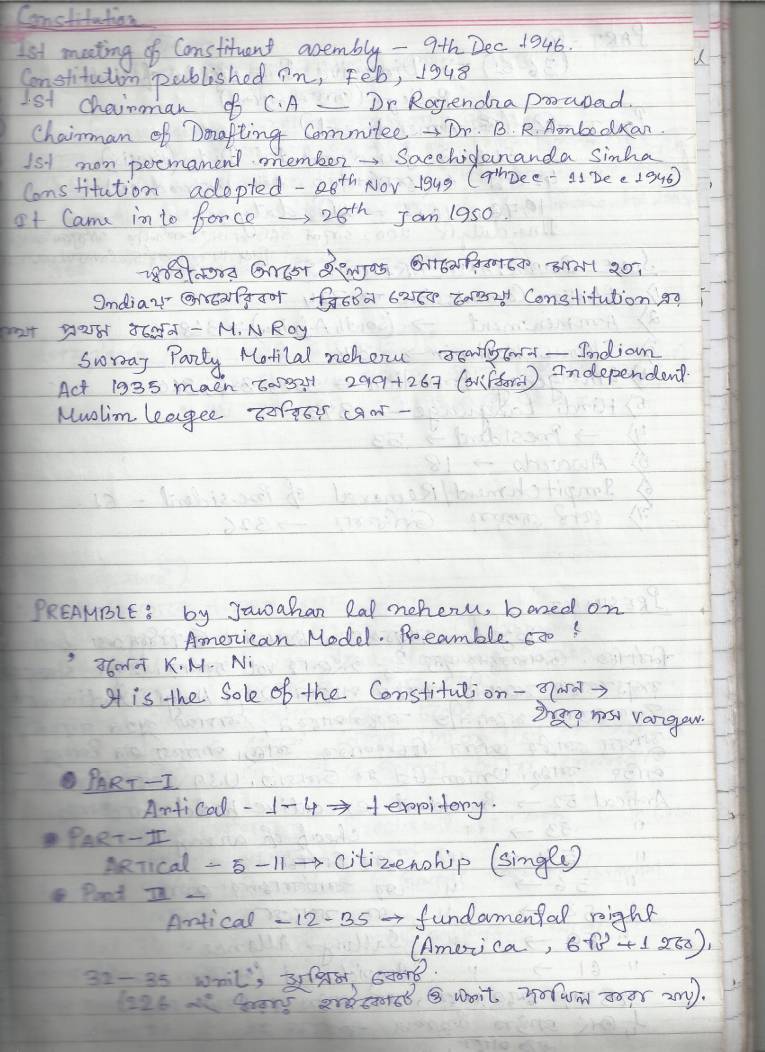 Constitution
1st meeting of Constituent asembly – 9th Dec 1946.
Constitution published in, Feb, 1948
1st Chairman of C.A — Dr Rajendra Prasad.
Chairman of Drafting Commitee → Dr. B. R. Ambedkar.
1st non permanent member → Sacchidananda Sinha
Constitution adopted – 26th Nov 1949 (9th Dec – 11 Dec 1946)
It Came in to force → 26th Jan 1950
স্বাধীনতার আগে ইংল্যান্ড আমেরিকাকে মানা হত,
India য় আমেরিকা ব্রিটেন থেকে নেওয়া Constitution এর
কথা প্রথম বলেন – M.N Roy
Swraj Party Motilal neheru বলেছিলেন — Indian
Act 1935 main নেওয়া 299+267 (সংবিধান) Independent.
Muslim leagee বেরিয়ে এল –
PREAMBLE: by Jawahar lal neheru, based on
American Model. Preamble কে
বলেন K.M. Ni
It is the Sole of the Constitution – বলেন →
ঠাকুর দাস Vargav.
PART–I
Artical – 1–4 ⇒ territory.
PART–II
ARTICAL – 5–11 → Citizenship (Single)
Part III –
Artical – 12-35 → fundamental right
(America, 6 টি + 1 হবে),
32–35 writ, সুপ্রিম কোর্ট.
(226 নং ধারায় হাইকোর্টে ও writ দাখিল করা যায়).